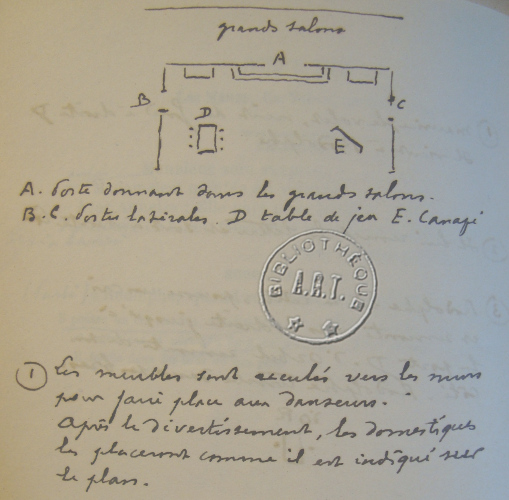 grands salons
A
B
C
D
E
A. Porte donnant dans les grands salons.
B. C. Portes latérales. D table de jeu E. Canapé
BIBLIOTHÈQUE
A.R.T.
① Les meubles sont acculés vers les murs
pour faire place aux danseurs.
Après le divertissement, les domestiques
les placeront comme il est indiqué sur
le plan.